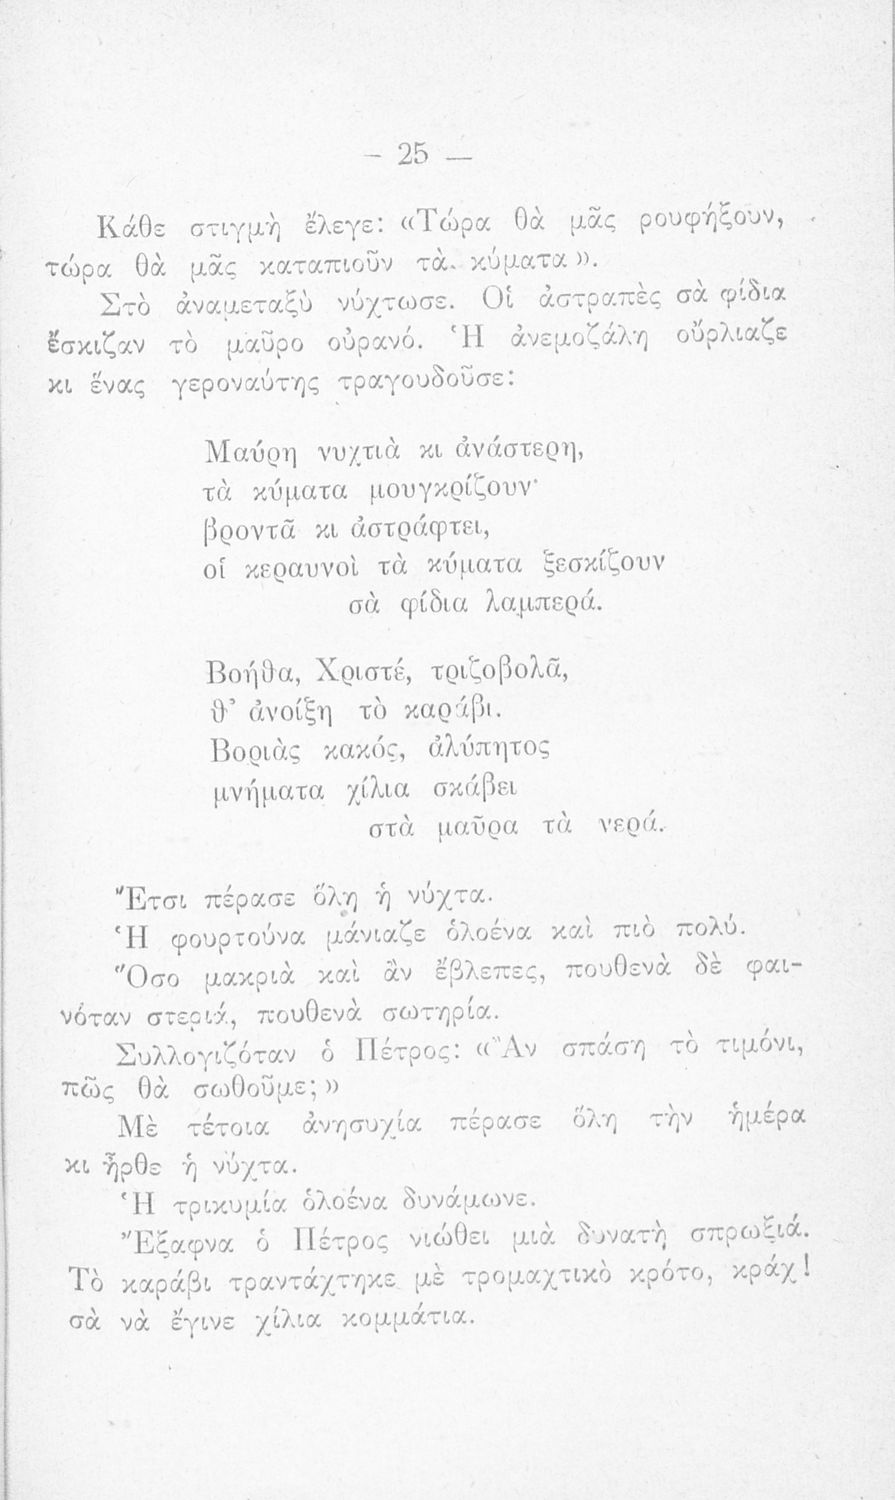 — 25 —
Κάθε στιγμὴ ἔλεγε: «Τώρα θὰ μᾶς ρουφήξουν,
τώρα θὰ μᾶς καταπιοῦν τὰ κύματα».
Στὸ ἀναμεταξὺ νύχτωσε. Οἱ ἀστραπὲς σὰ φίδια
ἔσκιζαν τὸ μαῦρο οὐρανό. Ἡ ἀνεμοζάλη οὔρλιαζε
κι ἕνας γεροναύτης τραγουδοῦσε:
Μαύρη νυχτιὰ κι ἀνάστερη,
τὰ κύματα μουγκρίζουν·
βροντᾶ κι ἀστράφτει,
οἱ κεραυνοὶ τὰ κύματα ξεσκίζουν
σὰ φίδια λαμπερά.
Βοήθα, Χριστέ, τριζοβολᾶ,
θ' ἀνοίξη τὸ καράβι.
Βοριὰς κακός, ἀλύπητος
μνήματα χίλια σκάβει
στὰ μαῦρα τὰ νερά.
Ἔτσι πέρασε ὅλη ἡ νύχτα.
Ἡ φουρτούνα μάνιαζε ὁλοένα καὶ πιὸ πολύ.
Ὅσο μακριὰ καὶ ἂν ἔβλεπες, πουθενὰ δὲ φαι-
νόταν στεριά, πουθενὰ σωτηρία.
Συλλογιζόταν ὁ Πέτρος: «Ἂν σπάση τὸ τιμόνι,
πῶς θὰ σωθοῦμε;»
Μὲ τέτοια ἀνησυχία πέρασε ὅλη τὴν ἡμέρα
κι ἦρθε ἡ νύχτα.
Ἡ τρικυμία ὁλοένα δυνάμωνε.
Ἔξαφνα ὁ Πέτρος νιώθει μιὰ δυνατὴ σπρωξιά.
Τὸ καράβι τραντάχτηκε μὲ τρομαχτικὸ κρότο, κράχ!
σὰ νὰ ἔγινε χίλια κομμάτια.